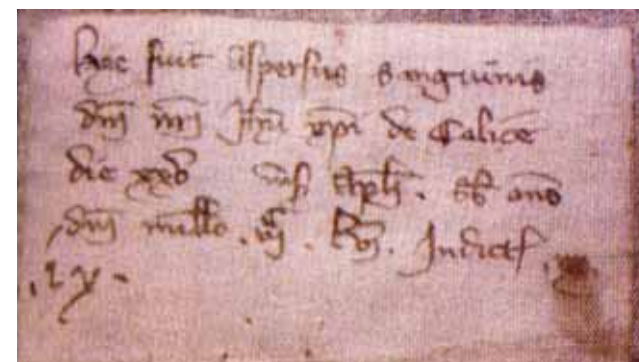 hoc fuit aspersus sanguinis
dni nri Jhu xpi de Calice
die xxv mēs Apl. sb ano
dni millo. Indict